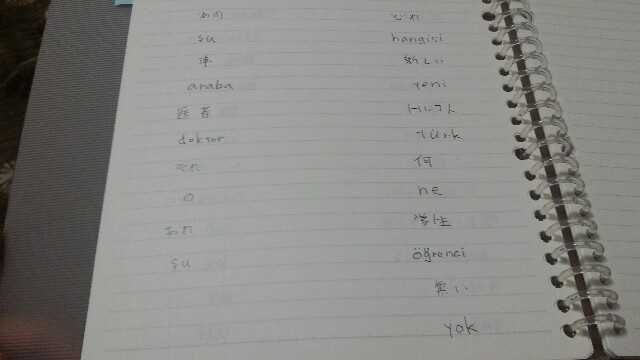 あれ
şu
車
araba
医者
doktor
それ
o
あれ
şu
どれ
hangisi
新しい
yeni
トルコ人
türk
何
ne
学生
öğrenci
無い
yok